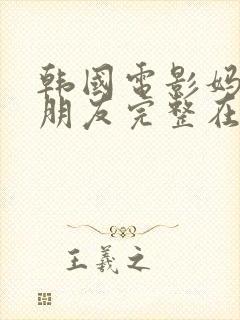 韩国电影妈
朋友完整在
王羲之